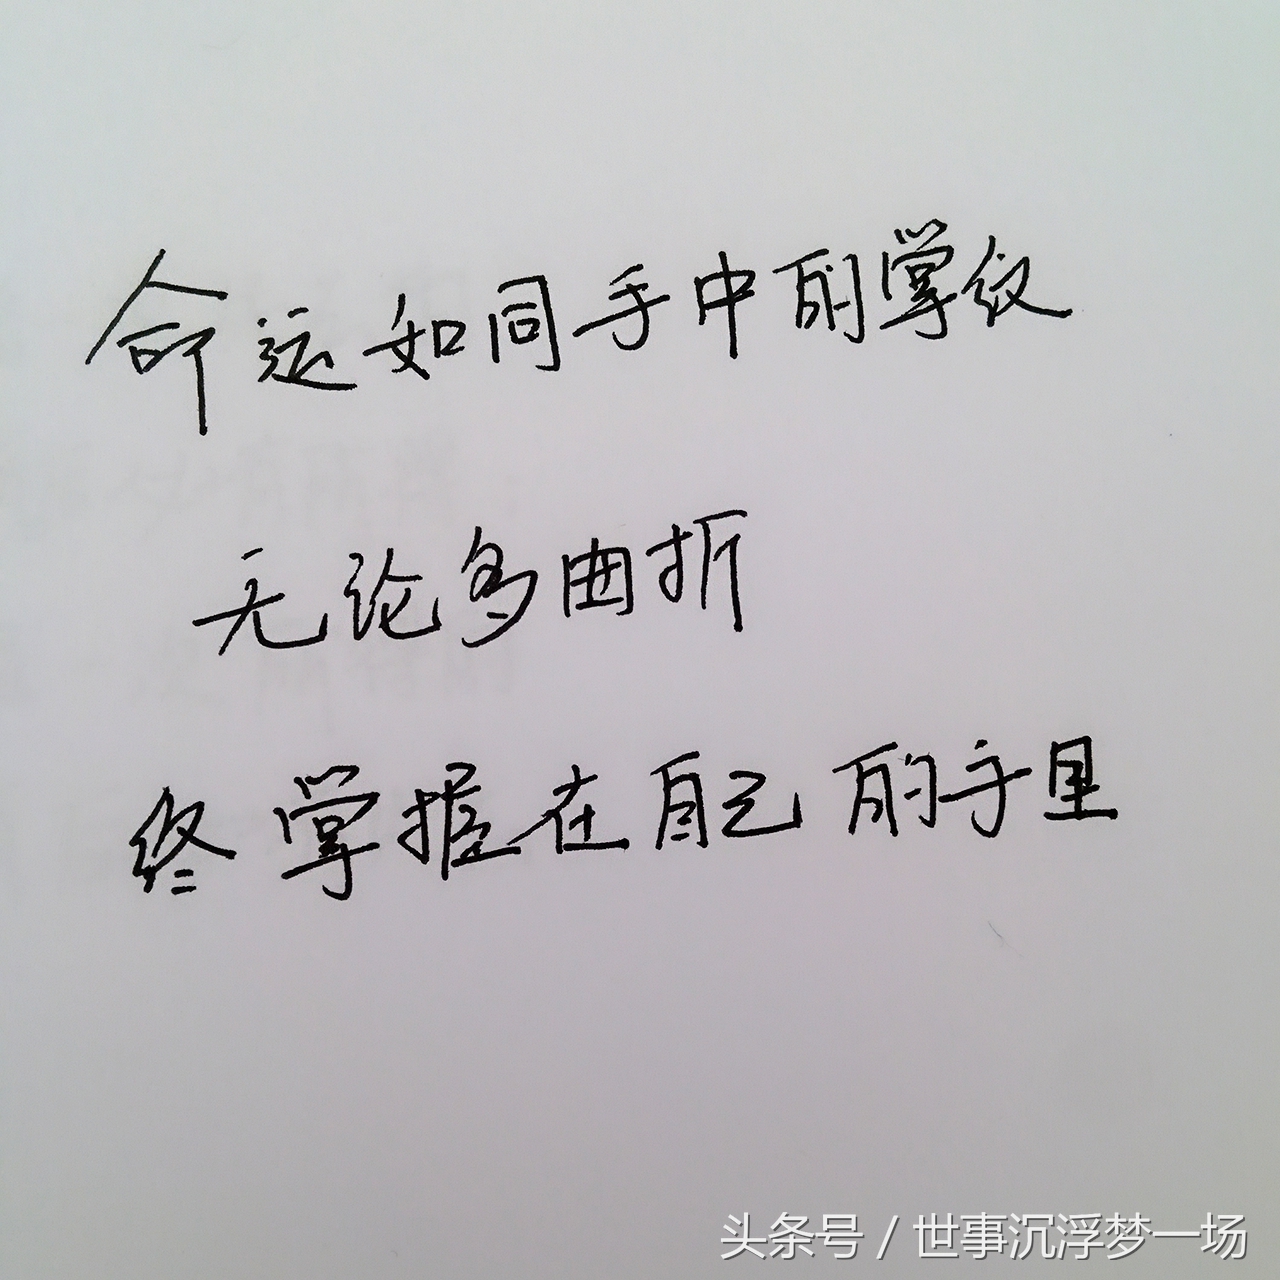 命运如同手中的掌纹
无论多曲折
终掌握在自己的手里
头条号 / 世事沉浮梦一场